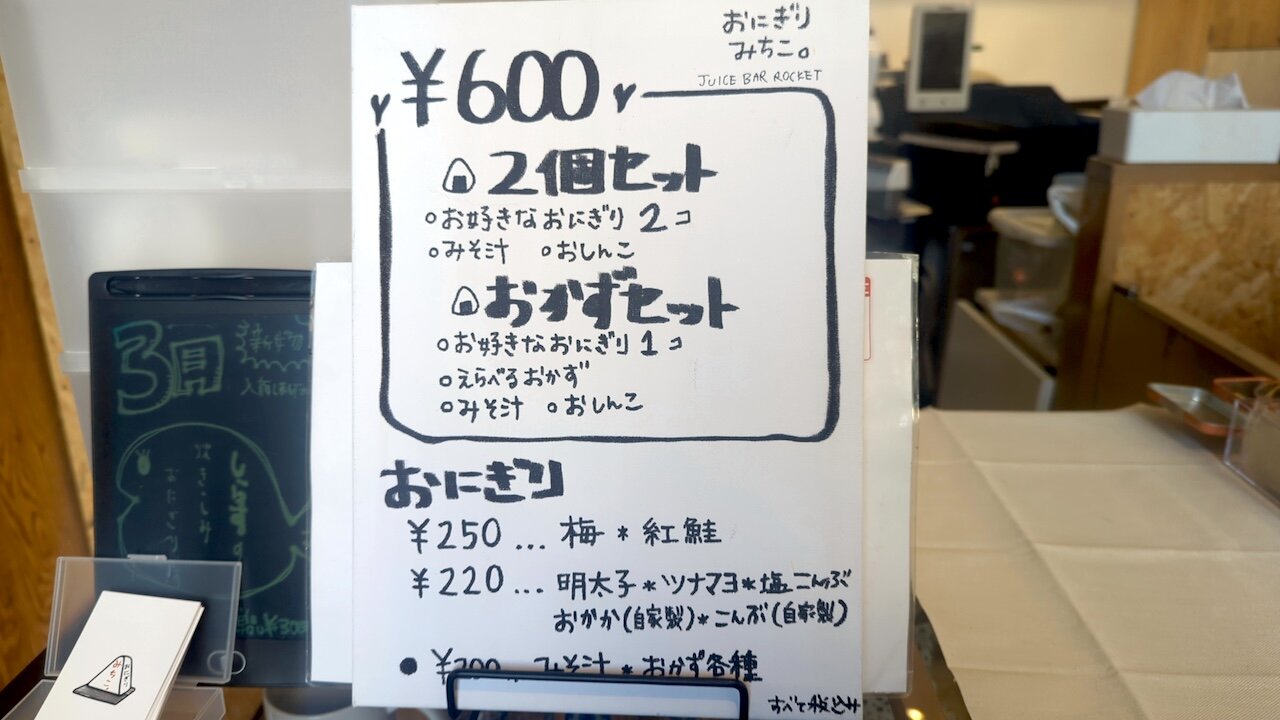 おにぎり
みちこ。
JUICE BAR ROCKET
¥600
2個セット
○お好きなおにぎり2コ
○みそ汁 ○おしんこ
おかずセット
○お好きなおにぎり1コ
○えらべるおかず
○みそ汁 ○おしんこ
おにぎり
¥250...梅*紅鮭
¥220...明太子*ツナマヨ*塩こんぶ
おかか(自家製)*こんぶ(自家製)
●みそ汁*おかず各種
すべて税込み
3月
みちこ